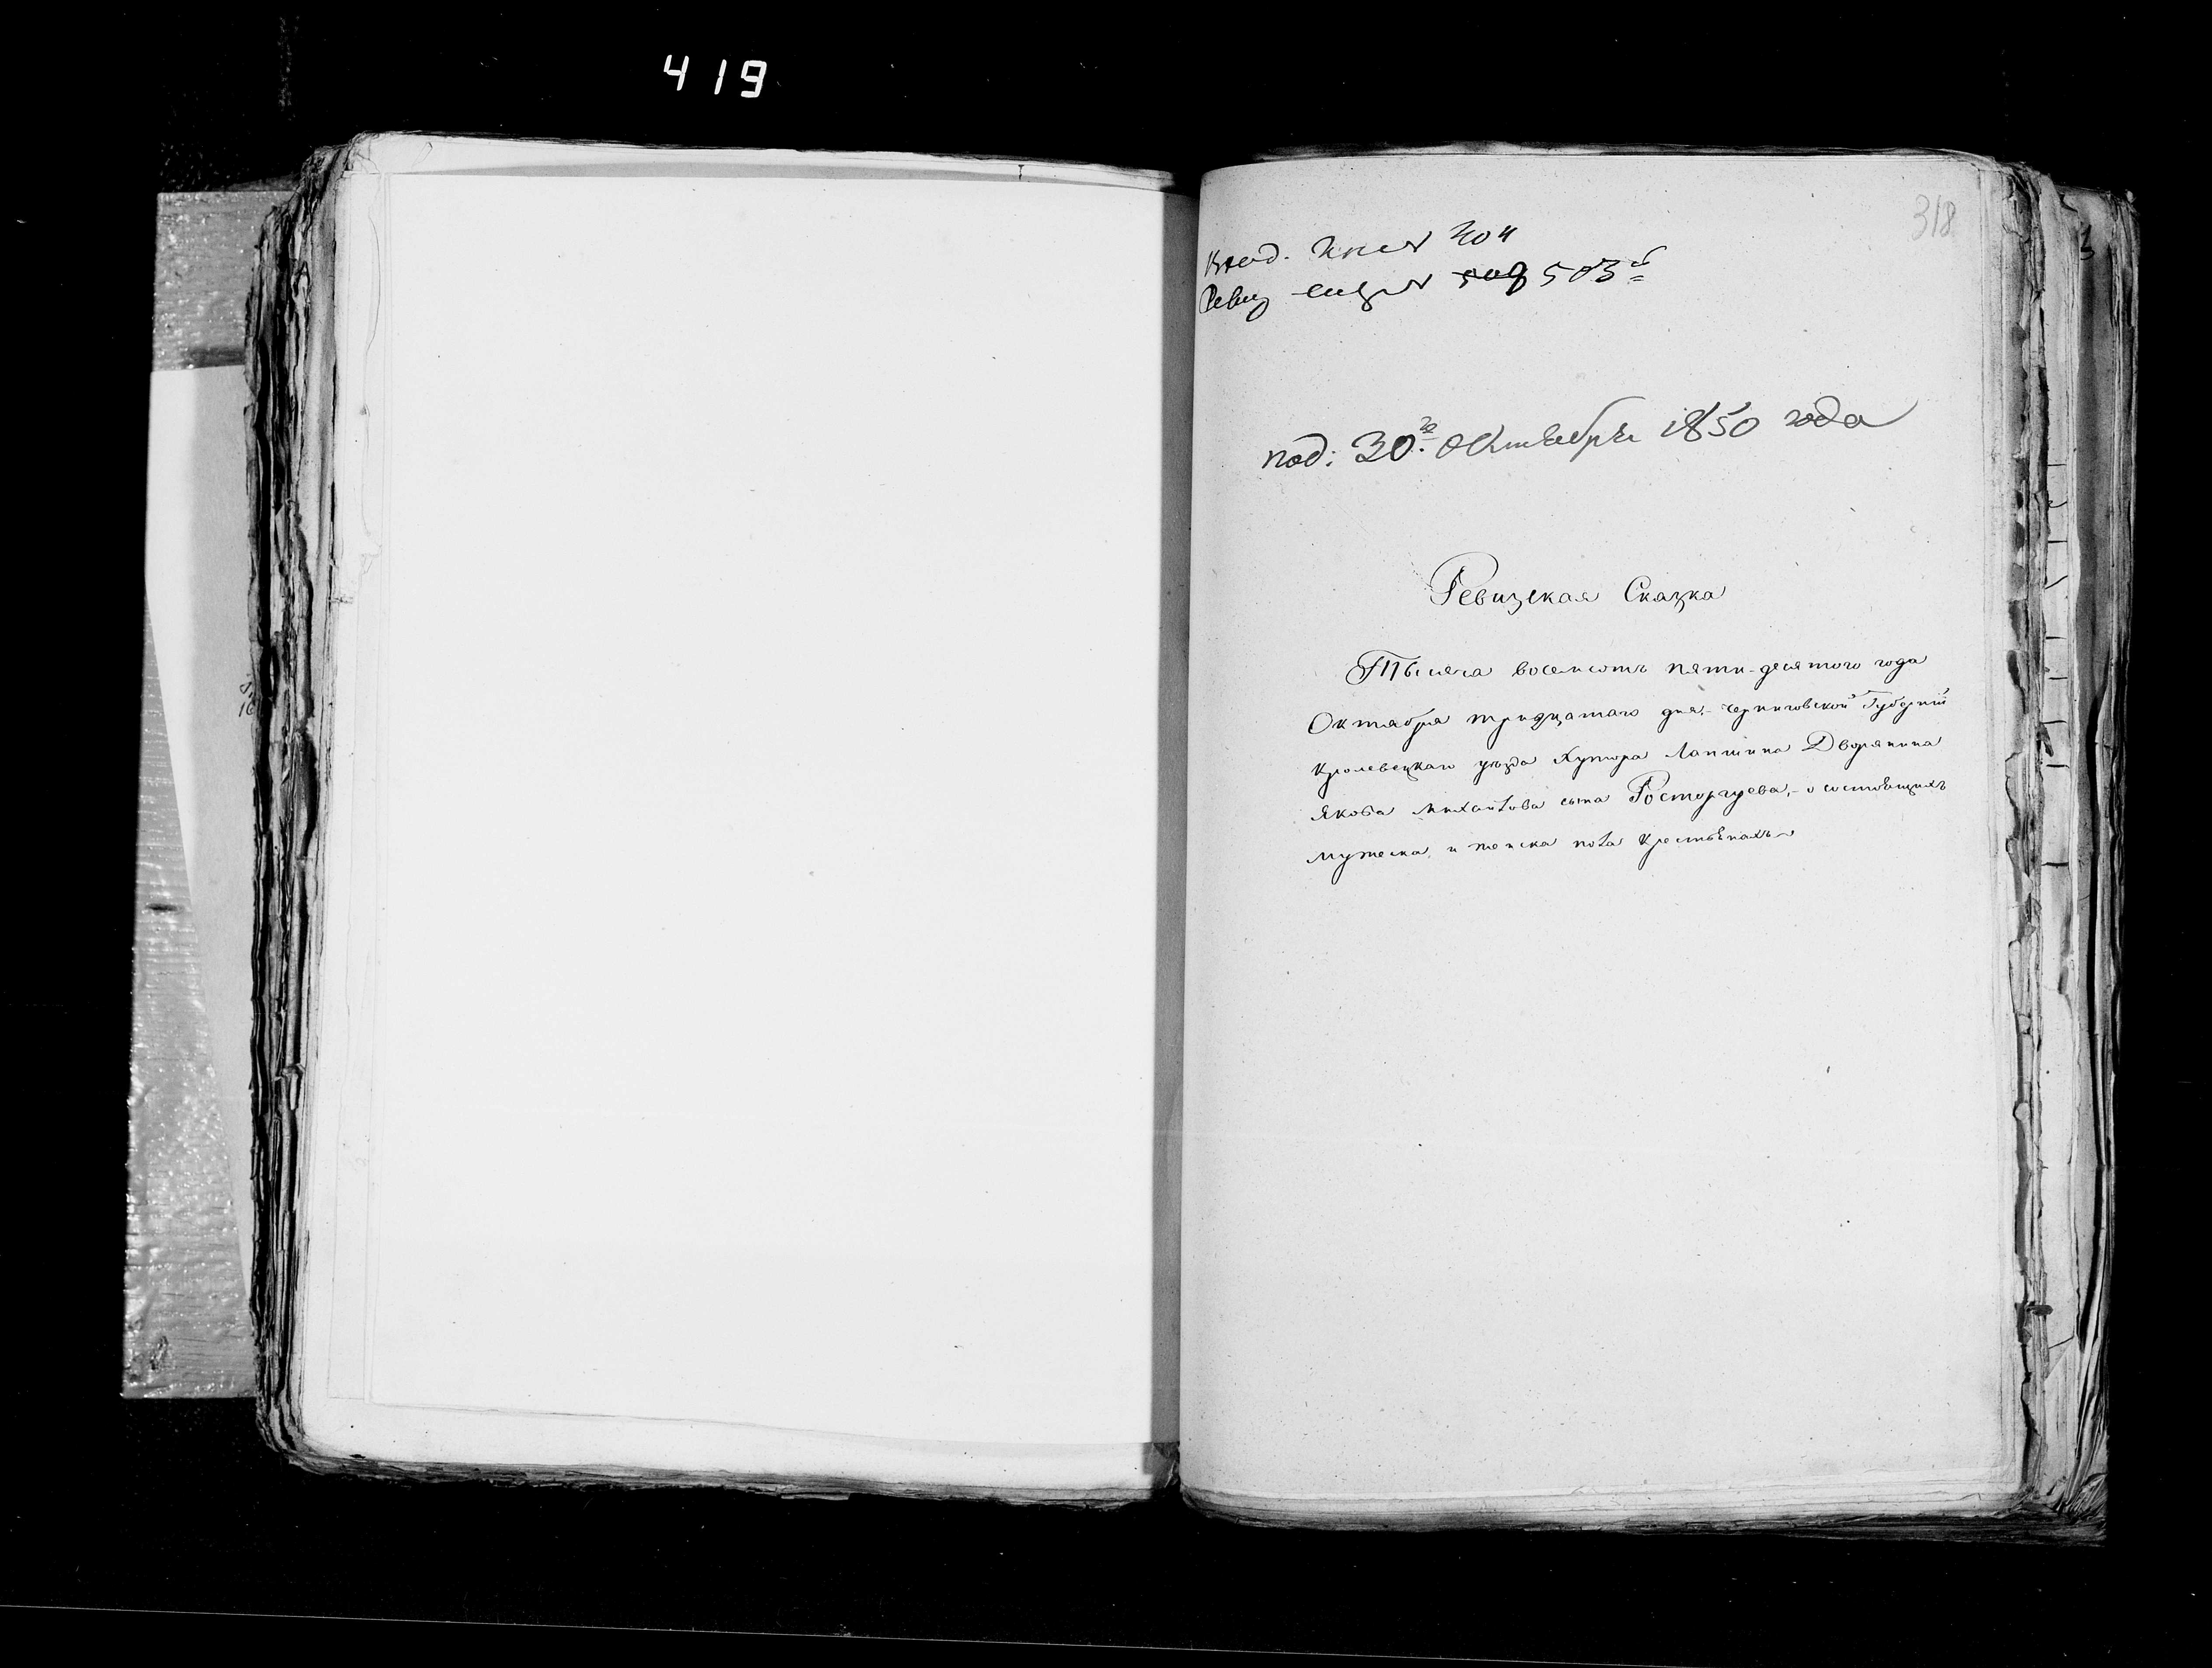 419
318
Вход. 404
Ревиз 503й
под: 30го Октября 1850 года
Ревизская Сказка
Тысяча восемсотъ пяти-десятого года
Октября тридцатаго дня,- Черниговской Губерніи
Кролевецкаго уезда Хутора Лапшина Дворянина
Якова Михайлова сына Росторгуева,- о состоящихъ
мужеска, и женска пола Крестьянахъ